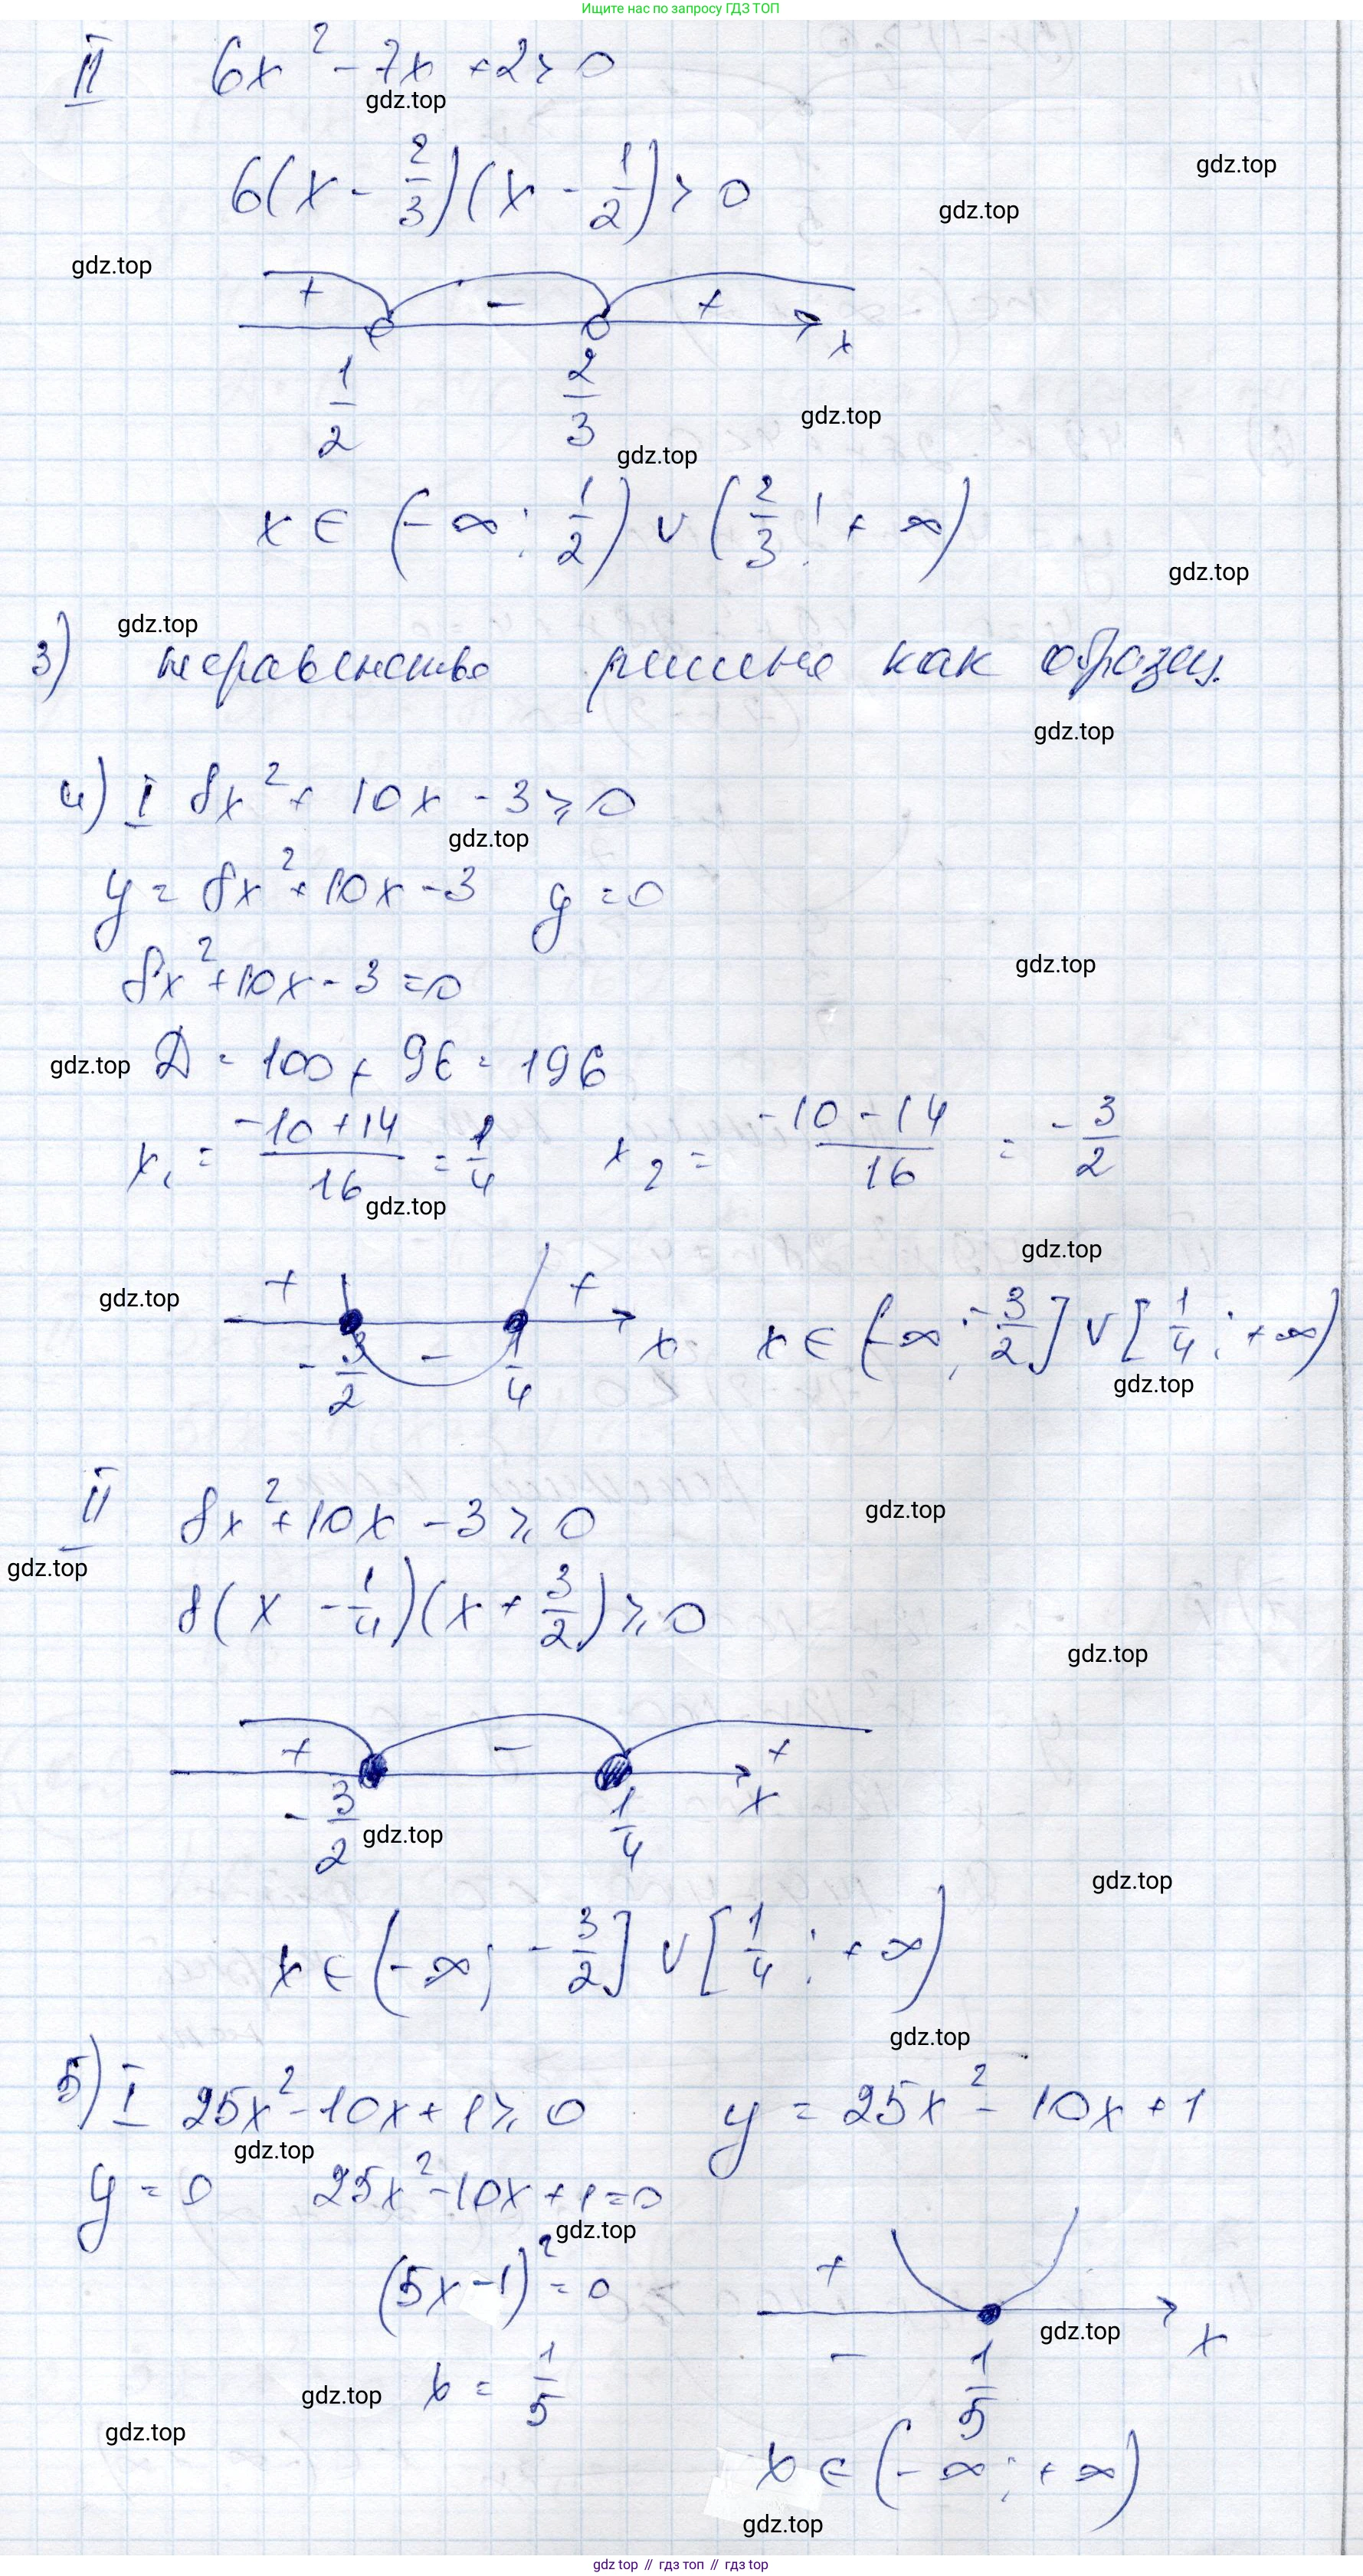 Ищите нас по запросу ГДЗ ТОП
II 6x² - 7x + 2 > 0
gdz.top
6(x - 2/3)(x - 1/2) > 0
gdz.top
gdz.top
gdz.top
+ - +
x
1/2 2/3
gdz.top
gdz.top
x ∈ (-∞; 1/2) ∪ (2/3; +∞)
gdz.top
gdz.top
3) неравенство решено как образец.
gdz.top
4) I 8x² + 10x - 3 ≥ 0
gdz.top
y = 8x² + 10x - 3 y = 0
8x² + 10x - 3 = 0
gdz.top
gdz.top
Д = 100 + 96 = 196
x₁ = (-10 + 14)/16 = 1/4 x₂ = (-10 - 14)/16 = -3/2
gdz.top
gdz.top
gdz.top
+ - +
-3/2 1/4 x x ∈ (-∞; -3/2] ∪ [1/4; +∞)
gdz.top
II 8x² + 10x - 3 ≥ 0
gdz.top
gdz.top
8(x - 1/4)(x + 3/2) ≥ 0
gdz.top
+ - +
-3/2 1/4 x
gdz.top
gdz.top
x ∈ (-∞; -3/2] ∪ [1/4; +∞)
gdz.top
5) I 25x² - 10x + 1 ≥ 0 y = 25x² - 10x + 1
gdz.top
y = 0 25x² - 10x + 1 = 0
gdz.top
(5x - 1)² = 0
+
gdz.top
x
-
1/5
x = 1/5
gdz.top
gdz.top
x ∈ (-∞; +∞)
gdz.top
gdz top // гдз топ // гдз top